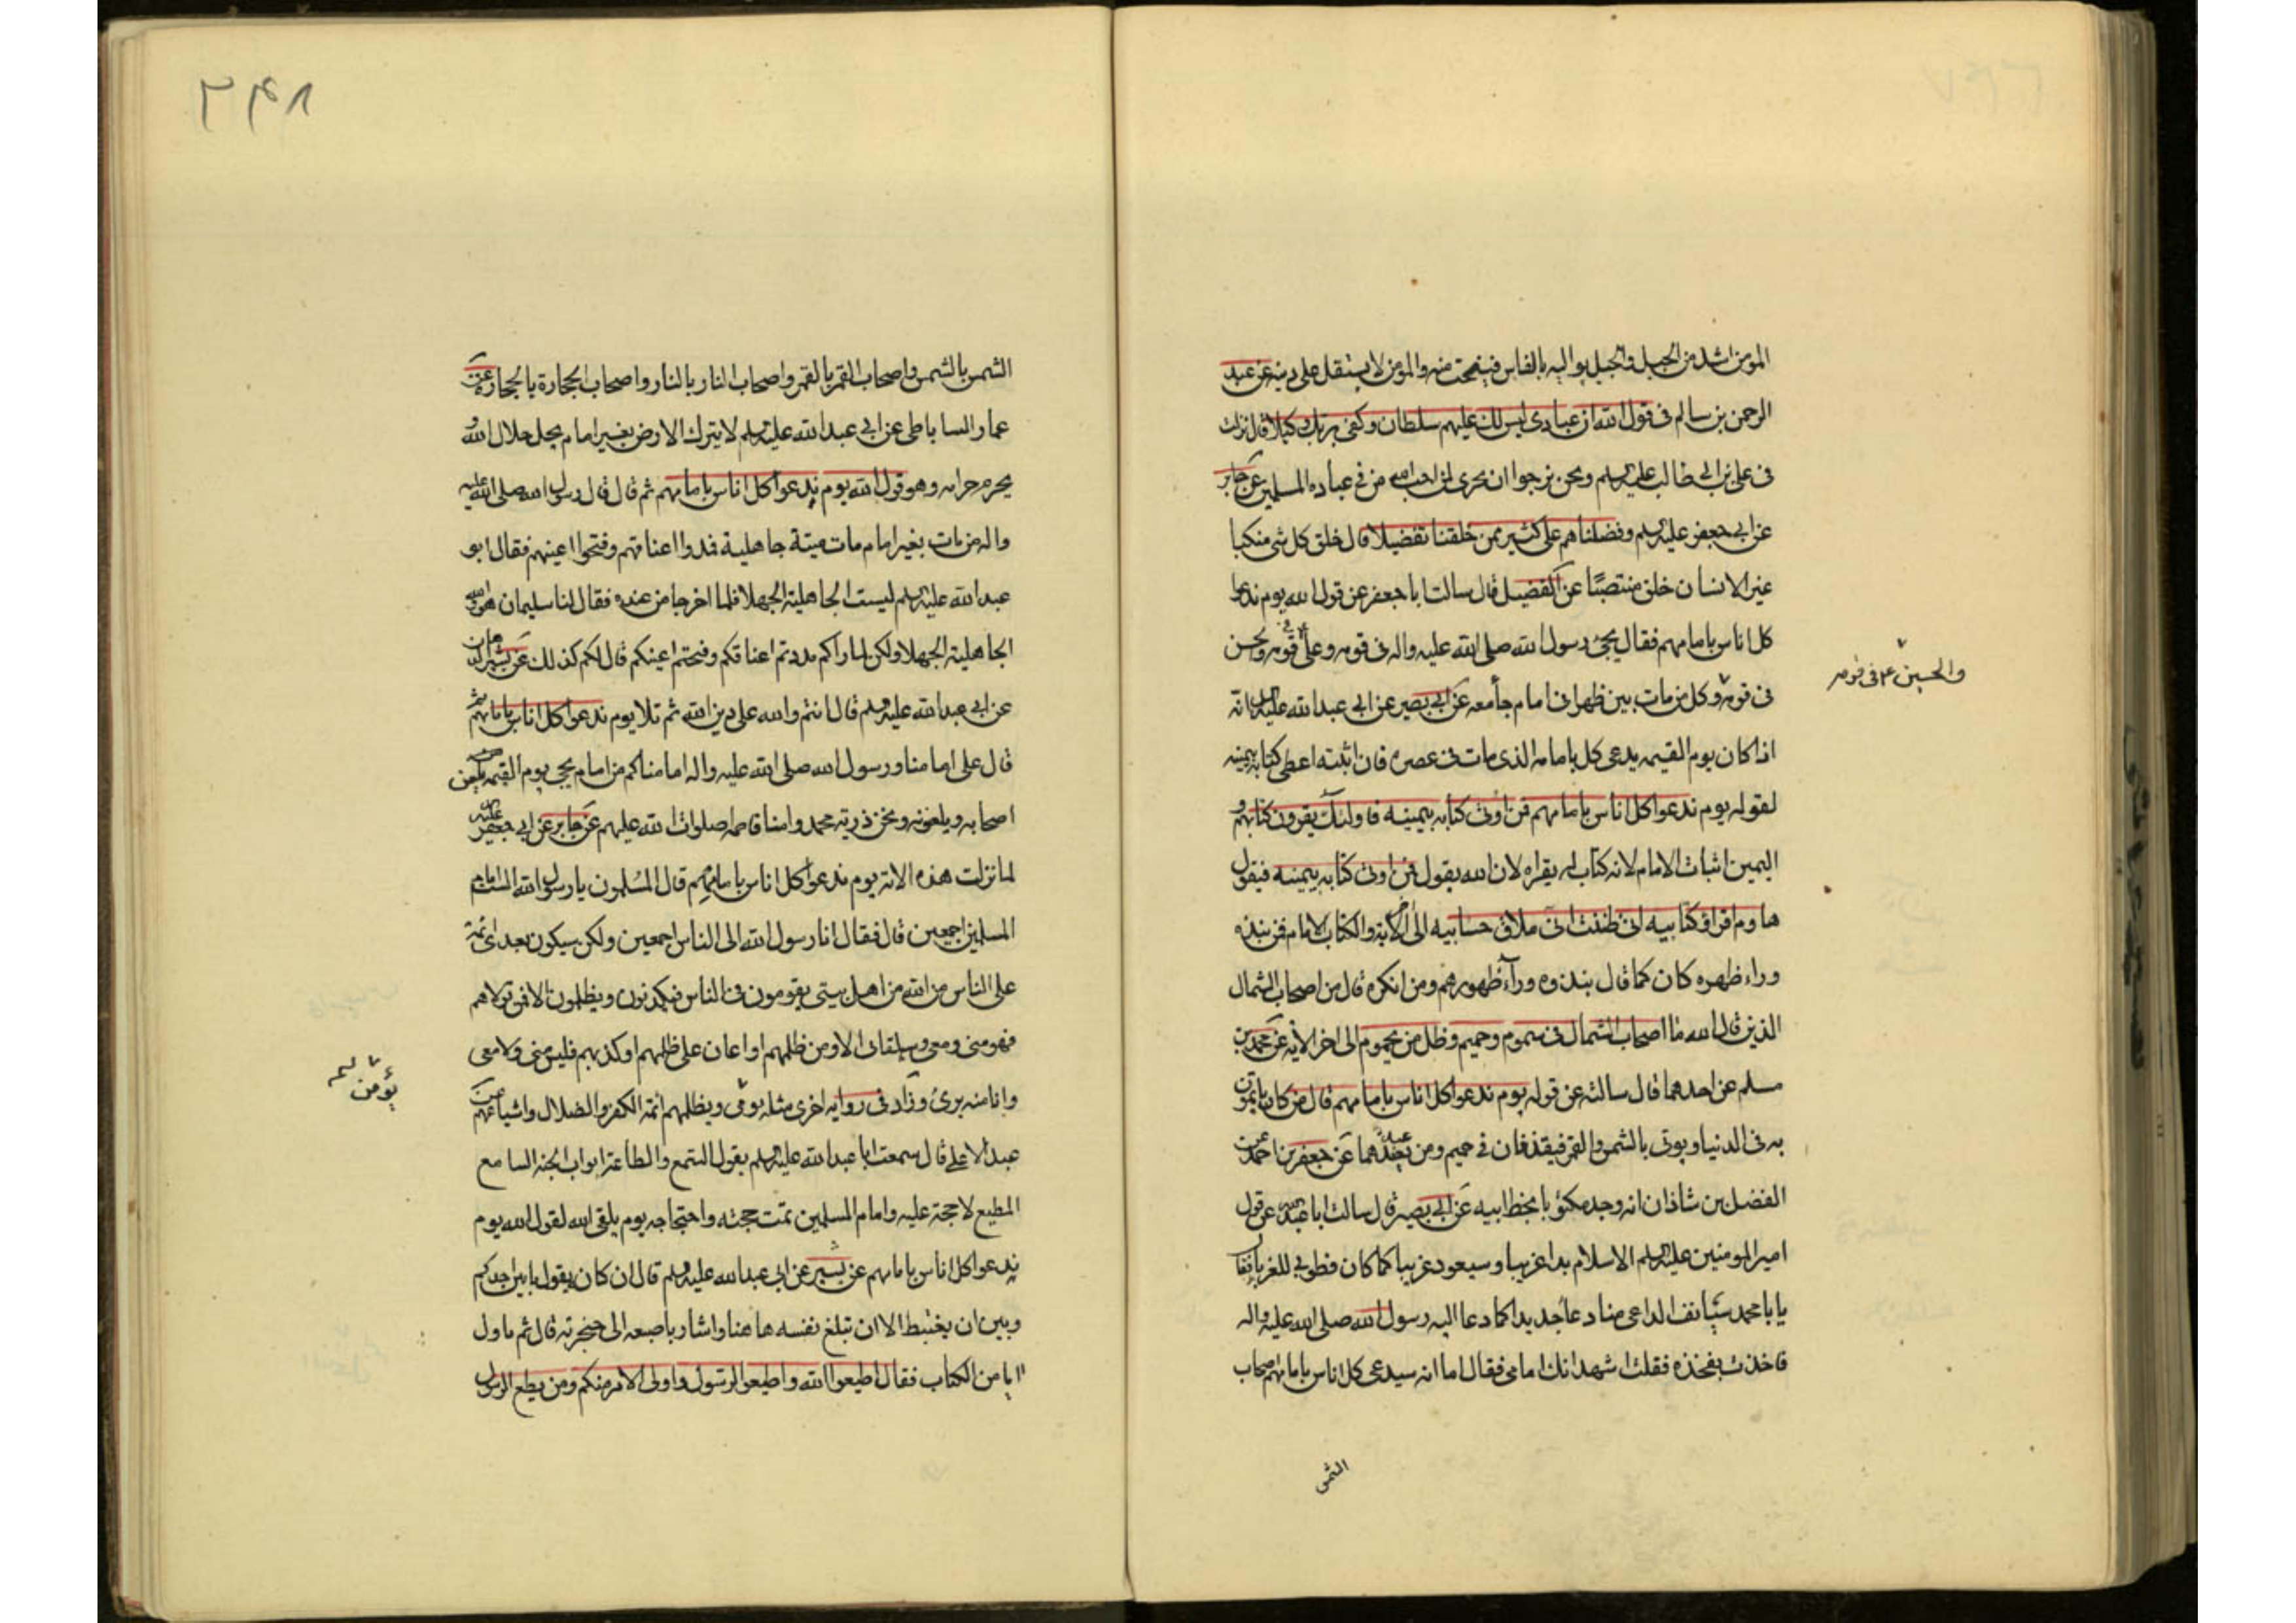 المؤمن اشد من الجبل والجبل يواليه بالفاس فينحت منه والمؤمن لا يستقل على دينه عن عبد
الرحمن بن سالم فى قول الله ان عبادى ليس لك عليهم سلطان وكفى بربك وكيلا قال نزلت
فى على بن ابى طالب عليه السلم ونحن نرجوا ان تجرى لمن احب الله من فى عباده المسلمين عن جابر
عن ابى جعفر عليه السلم وفضلناهم على كثير ممن خلقنا تفضيلا قال خلق كل شى منكبا
غير الانسان خلق منتصبًا عن الفضيل قال سالت ابا جعفر عن قول الله يوم ندعوا
كل اناس بامامهم فقال يجئ رسول الله صلى الله عليه واله فى قومه وعلى فى قومه والحسن
والحسين ع فى قومه
فى قومه وكل من مات بين ظهرانى امام جاء معه عن ابى بصير عن ابى عبد الله عليه السلم انه
اذا كان يوم القيمه يدعى كل بامامه الذى مات فى عصره فان اثبته اعطى كتابه بيمينه
لقوله يوم ندعوا كل اناس بامامهم فمن اوتى كتابه بيمينه فاولئك يقرون كتابهم و
اليمين اثبات الامام لانه كتاب له يقراه لان الله يقول فمن اوتى كتابه بيمينه فيقول
هاوم اقراوا كتابيه انى ظننت انى ملاق حسابيه الى اخر الاية والكتاب الامام فمن نبذه
وراء ظهره كان كما قال نبذوه ورآء ظهورهم ومن انكره قال من اصحاب الشمال
الذين قال الله ما اصحاب الشمال فى سموم وحميم وظل من يحموم الى اخر الايه عن محمد بن
مسلم عن احدهما قال سالته عن قوله يوم ندعوا كل اناس بامامهم قال من كان ياتمون
به فى الدنيا ويوتى بالشمس والقمر فيقذفان فى حميم ومن يعبدهما عن جعفر بن احمد عن
الفضل بن شاذان انه وجد مكتوبا بخط ابيه عن ابى بصير قال سالت ابا عبد الله عن قول
امير المومنين عليه السلم الاسلام بدا غريبا وسيعود غريبا كما كان فطوبى للغربا فقال
يا با محمد يستانف الداعى منا دعاء جديدا كما دعا اليه رسول الله صلى الله عليه واله
فاخذت بفخذه فقلت اشهد انك امامى فقال اما انه سيدعى كل اناس بامامهم اصحاب
الشمس
٢٩٨
الشمس بالشمس واصحاب القمر بالقمر واصحاب النار بالنار واصحاب الحجارة بالحجارة عن
عمار الساباطى عن ابى عبد الله عليه السلم لا يترك الارض بغير امام يحل حلال الله و
يحرم حرامه وهو قول الله يوم ندعوا كل اناس بامامهم ثم قال قال رسول الله صلى الله عليه
واله من مات بغير امام مات ميتة جاهلية فمدوا اعناقهم وفتحوا اعينهم فقال ابو
عبد الله عليه السلم ليست الجاهلية الجهلا فلما اخرجنا من عنده فقال لنا سليمان هو والله
الجاهلية الجهلا ولكن لما راكم مددتم اعناقكم وفتحتم اعينكم قال لكم كذلك عن بشير الدهان
عن ابى عبد الله عليه السلم قال انتم والله على دين الله ثم تلا يوم ندعوا كل اناس بامامهم ثم
قال على امامنا ورسول الله صلى الله عليه واله امامنا كم من امام يجى يوم القيمه يلعن
اصحابه ويلعنونه ونحن ذرية محمد وامنا فاطمه صلوات الله عليهم عن جابر عن ابى جعفر عليه السلم
لما نزلت هذه الايه يوم ندعوا كل اناس بامامهم قال المسلمون يا رسول الله الست امام
المسلمين اجمعين قال فقال انا رسول الله الى الناس اجمعين ولكن سيكون بعدى ائمة
على الناس من الله من اهل بيتى يقومون فى الناس فيكذبون ويظلمون الا فمن تولاهم
فهو منى ومعى وسيلقانى الا ومن ظلمهم او اعان على ظلمهم او كذبهم فليس منى ولا معى
وانا منه برئ وزاد فى رواية اخرى مثله ويظلمهم ائمة الكفر والضلال واشياعهم عن
عبد الاعلى قال سمعت ابا عبد الله عليه السلم يقول السمع والطاعة ابواب الجنه السامع
المطيع لا حجة عليه وامام المسلمين تمت حجته واحتجاجه يوم يلقى الله لقول الله يوم
ندعوا كل اناس بامامهم عن بشير عن ابى عبد الله عليه السلم قال ان كان يقول ما بين احدكم
وبين ان يغتبط الا ان تبلغ نفسه هاهنا واشار باصبعه الى حنجرته قال ثم تاول
ايا من الكتاب فقال اطيعوا الله واطيعوا الرسول واولى الامر منكم ومن يطع الرسول